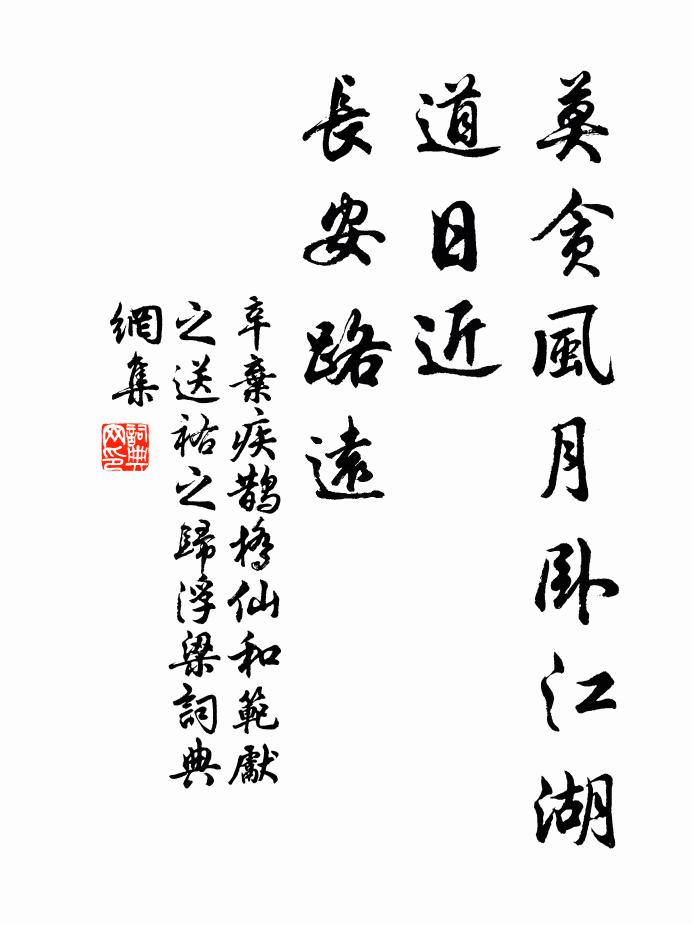 莫貪風月卧江湖
道日近
長安路遠
辛棄疾鵲橋仙和範獻
之送祐之歸浮梁詞典
網集
詞典網印